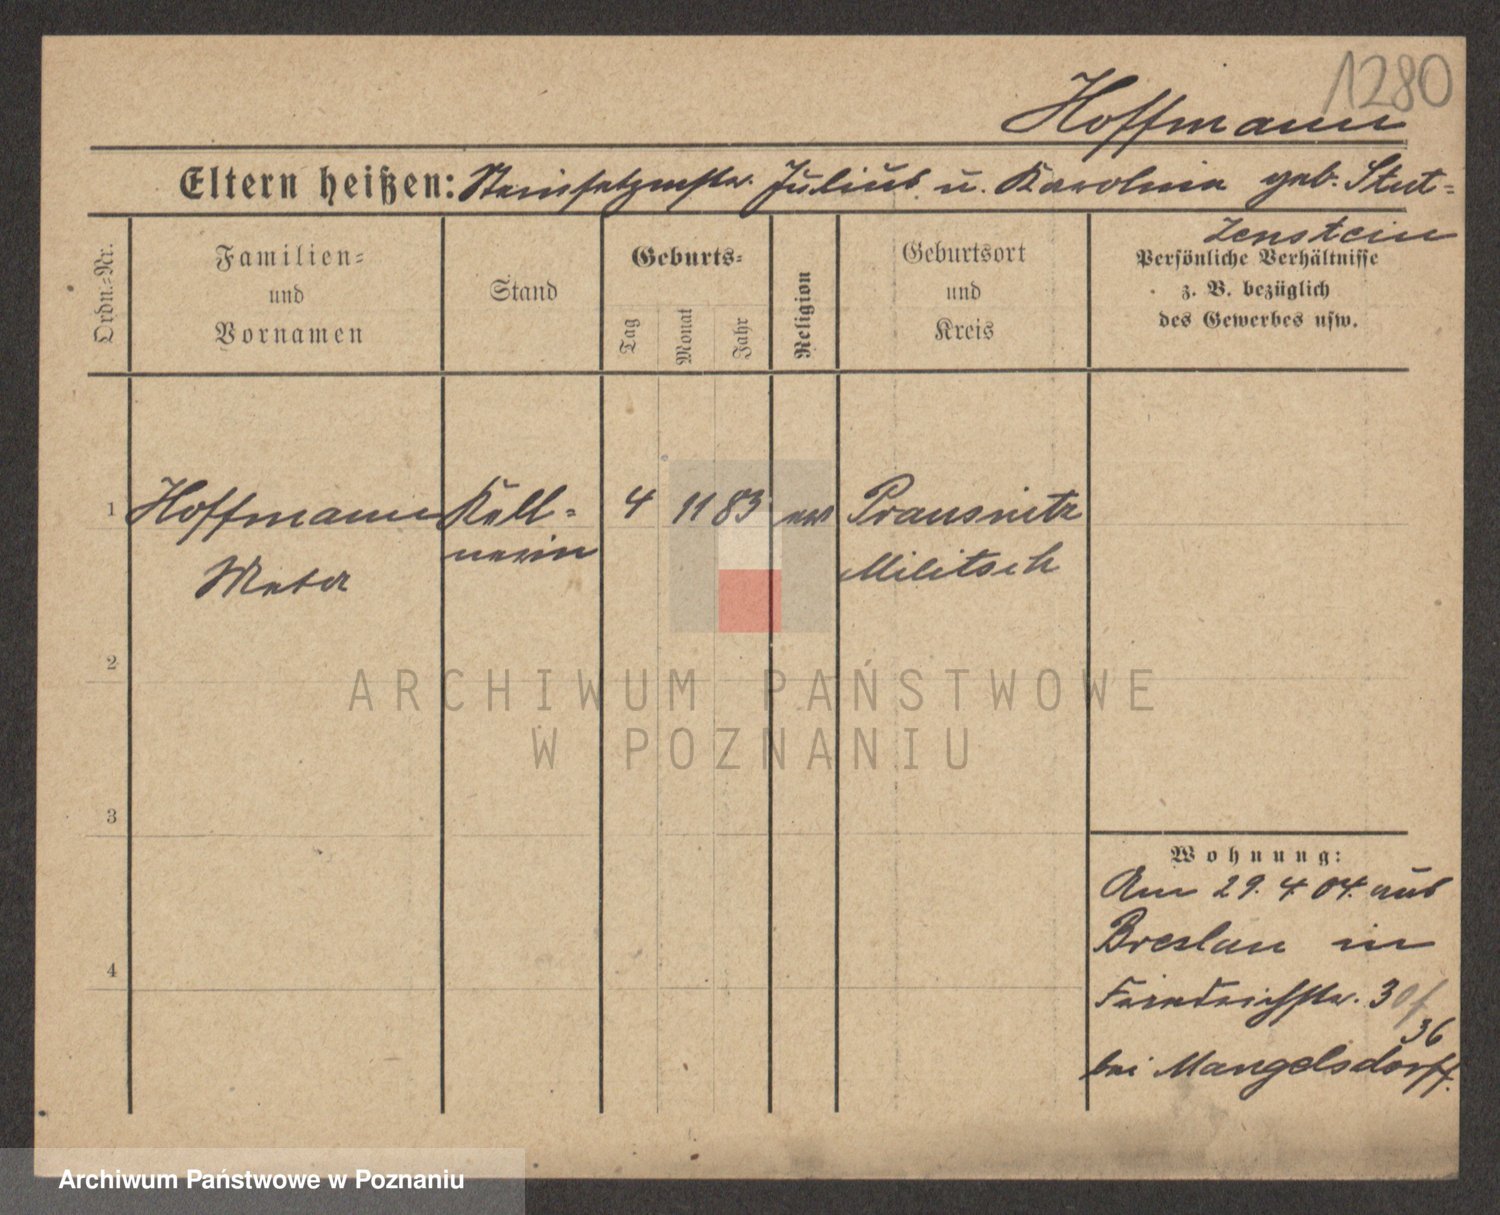 1280
Hoffmann
Eltern heißen: Steinsetzmstr. Julius u. Karolina geb. Stut-
zenstein
Ordn.-Nr.
Familien-
und
Vornamen
Stand
Geburts-
Tag
Monat
Jahr
Religion
Geburtsort
und
Kreis
Persönliche Verhältnisse
z. B. bezüglich
des Gewerbes usw.
1 Hoffmann Kell- 4 11 83 ev Prausnitz
Meta nerin Militsch
2
ARCHIWUM PAŃSTWOWE
W POZNANIU
3
Wohnung:
Am 29. 4 04. aus
Breslau in
4
Friedrichstr. 30
36
bei Mangelsdorff.
Archiwum Państwowe w Poznaniu